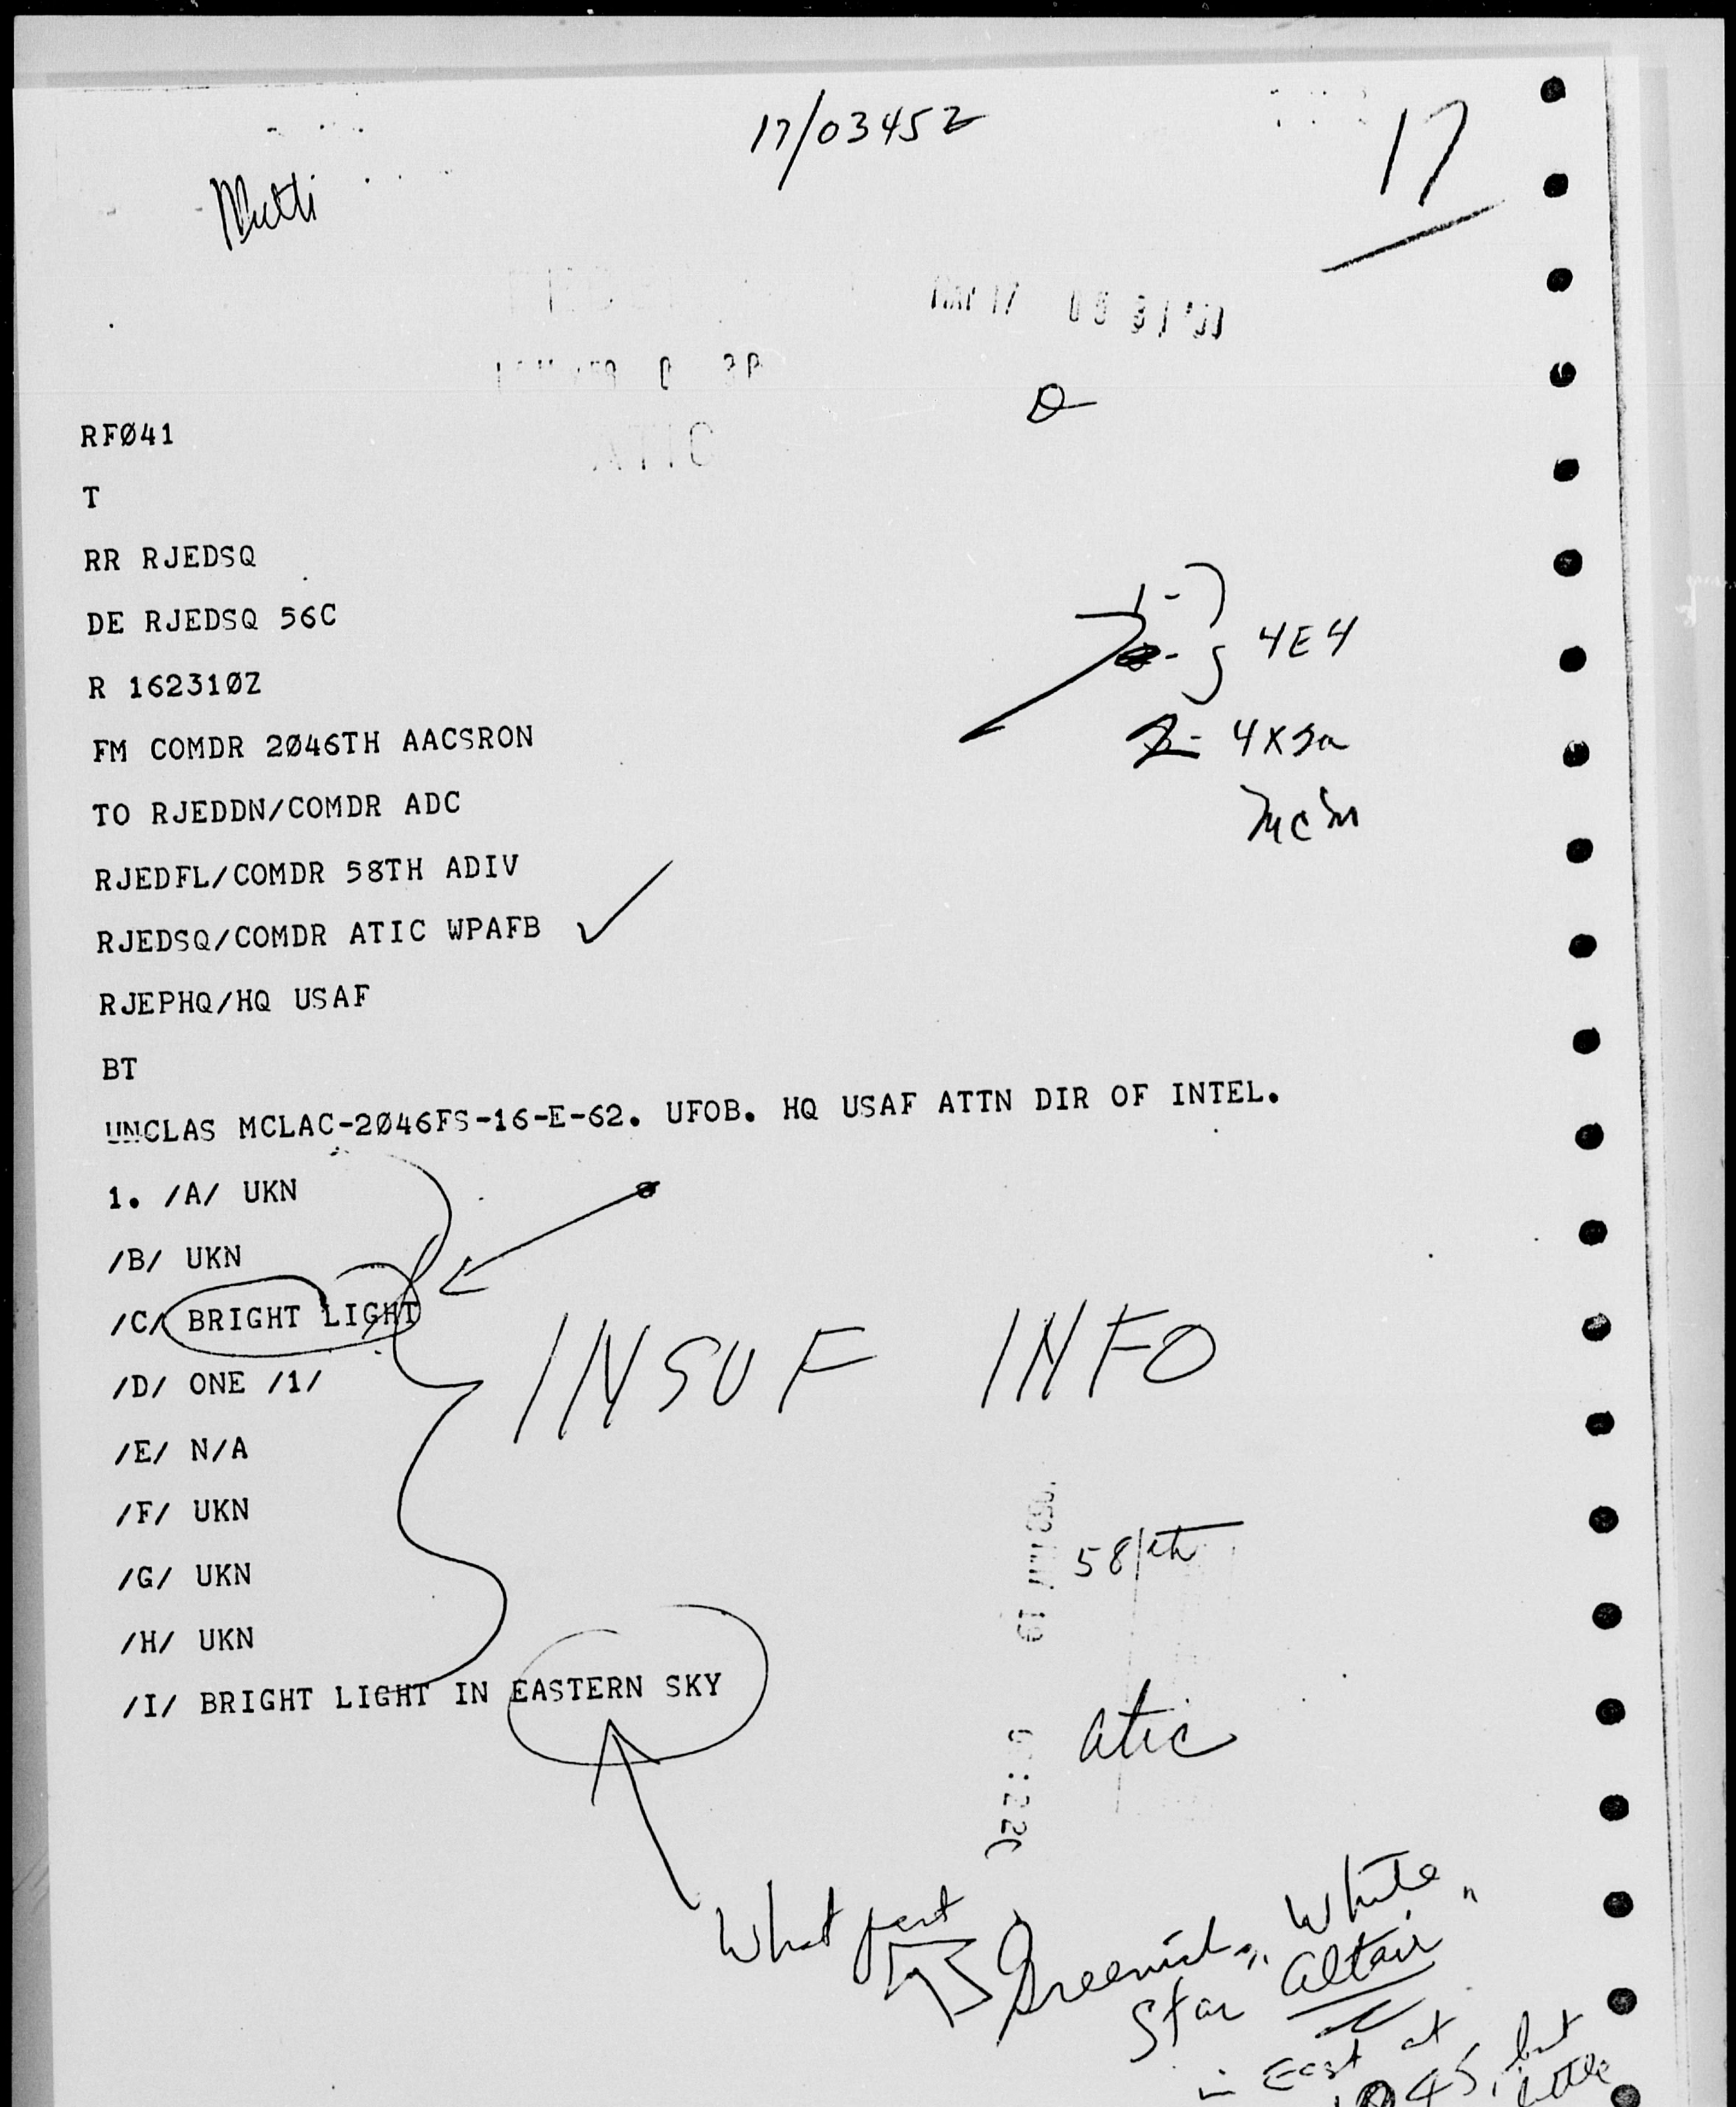 17/03452
17
MAY 17
ATIC
RFØ41
T
RR RJEDSQ
DE RJEDSQ 56C
R 16231ØZ
FM COMDR 2Ø46TH AACSRON
TO RJEDDN/COMDR ADC
RJEDFL/COMDR 58TH ADIV
RJEDSQ/COMDR ATIC WPAFB
RJEPHQ/HQ USAF
4E4
BT
UNCLAS MCLAC-2Ø46FS-16-E-62. UFOB. HQ USAF ATTN DIR OF INTEL.
1. /A/ UKN
/B/ UKN
/C/ BRIGHT LIGHT
/D/ ONE /1/
INSUF INFO
/E/ N/A
/F/ UKN
/G/ UKN
/H/ UKN
/I/ BRIGHT LIGHT IN EASTERN SKY
58th
atic
What part
Greenish, White
Star "Altair"
in East at
but
little